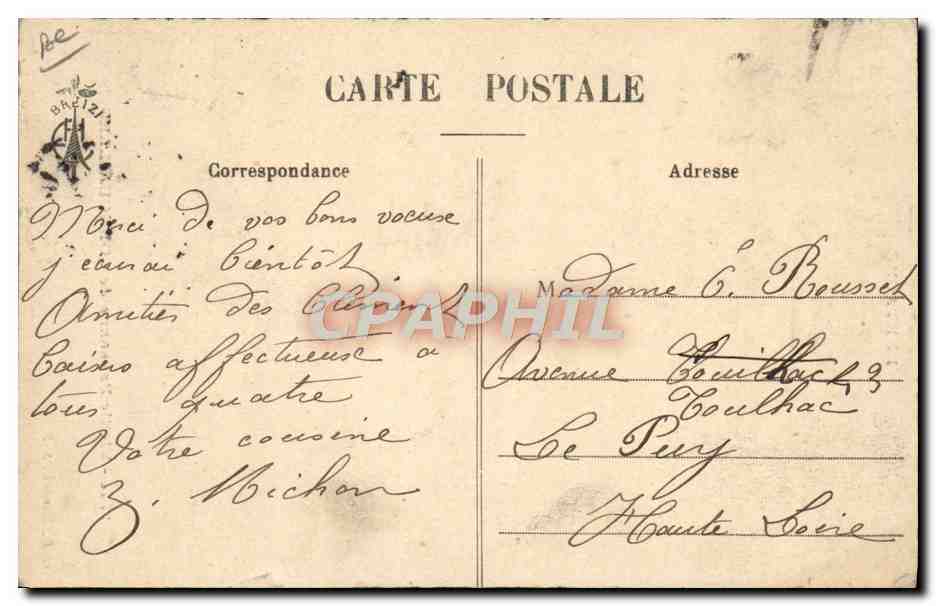 BREIZ
CARTE POSTALE
Correspondance
Merci de vos bons voeuse
j'enrai bientôt
Amitiés des Clément
baises affectueuse a
tous quatre
Votre cousine
Z. Michon
Adresse
Madame C. Rousset
Avenue Touilhac, 2
Toulhac
Le Puy
Haute Loire
CPAPHIL